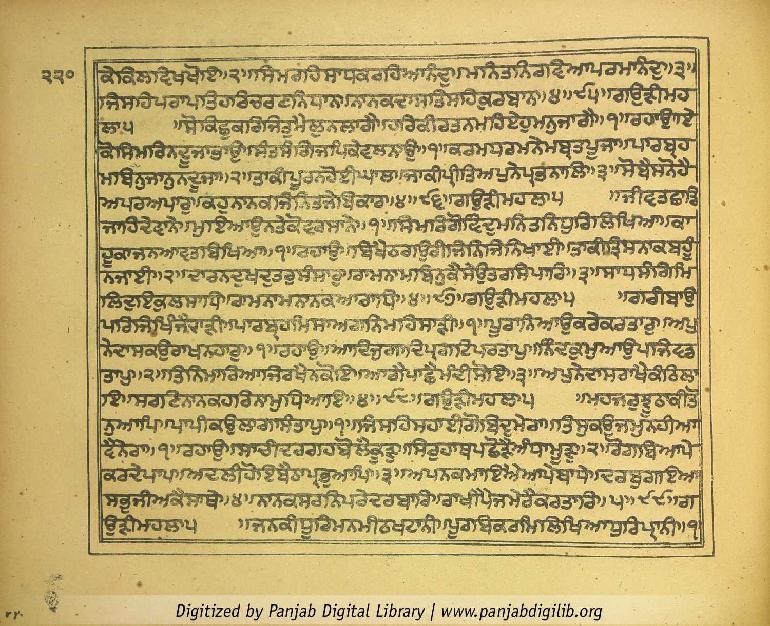 ੨੨੦
ਕੋਕਿਲਵਿਖੁਖੋਇ॥੨॥ਸਿਮਰਹਿਸਾਧਕਰਹਿਆਨੰਦੁ॥ਮਨਿਤਨਿਰਵਿਆਪਰਮਾਨੰਦੁ॥੩॥
ਜਿਸਹਿਪਰਾਪਤਿਹਰਿਚਰਣਨਿਧਾਨ॥ਨਾਨਕਦਾਸਤਿਸਹਿਕੁਰਬਾਨ॥੪॥੯੫॥ਗਉੜੀਮਹ
ਲਾ੫ ॥ਸੋਕਿਛੁਕਰਿਜਿਤੁਮੈਲੁਨਲਾਗੈ॥ਹਰਿਕੀਰਤਨਮਹਿਏਹੁਮਨੁਜਾਗੈ॥੧॥ਰਹਾਉ॥ਏ
ਕੋਸਿਮਰਿਨਦੂਜਾਭਾਉ॥ਸੰਤਸੰਗਿਜਪਿਕੇਵਲਨਾਉ॥੧॥ਕਰਮਧਰਮਨੇਮਬ੍ਰਤਪੂਜਾ॥ਪਾਰਬ੍ਰਹ
ਮਬਿਨੁਜਾਨੁਨਦੂਜਾ॥੨॥ਤਾਕੀਪੂਰਨਹੋਈਘਾਲ॥ਜਾਕੀਪ੍ਰੀਤਿਅਪੁਨੇਪ੍ਰਭਨਾਲਿ॥੩॥ਸੋਬੈਸਨੋਹੈ
ਅਪਰਅਪਾਰੁ॥ਕਹੁਨਾਨਕਜਿਨਿਤਜੇਬਿਕਾਰ॥੪॥੯੬॥ਗਉੜੀਮਹਲਾ੫ ॥ਜੀਵਤਛਾਡਿ
ਜਾਹਿਦੇਵਾਨੇ॥ਮੁਇਆਉਨਤੇਕੋਵਰਸਾਂਨੇ॥੧॥ਸਿਮਰਿਗੋਵਿੰਦੁਮਨਿਤਨਿਧੁਰਿਲਿਖਿਆ॥ਕਾ
ਹੂਕਾਜਨਆਵਤਬਿਖਿਆ॥੧॥ਰਹਾਉ॥ਬਿਖੈਠਗਉਰੀਜਿਨਿਜਿਨਿਖਾਈ॥ਤਾਕੀਤ੍ਰਿਸਨਾਕਬਹੂੰ
ਨਜਾਈ॥੨॥ਦਾਰਨਦੁਖਦੁਤਰਸੰਸਾਰੁ॥ਰਾਮਨਾਮਬਿਨੁਕੈਸੇਉਤਰਸਿਪਾਰਿ॥੩॥ਸਾਧਸੰਗਿਮਿ
ਲਿਦੁਇਕੁਲਸਾਧਿ॥ਰਾਮਨਾਮਨਾਨਕਆਰਾਧਿ॥੪॥੯੭॥ਗਉੜੀਮਹਲਾ੫ ॥ਗਰੀਬਾਉ
ਪਰਿਜਿਖਿੰਜੈਦਾੜੀ॥ਪਾਰਬ੍ਰਹਮਿਸਾਅਗਨਿਮਹਿਸਾੜੀ॥੧॥ਪੂਰਾਨਿਆਉਕਰੇਕਰਤਾਰੁ॥ਅਪੁ
ਨੇਦਾਸਕਉਰਾਖਨਹਾਰੁ॥੧॥ਰਹਾਉ॥ਆਦਿਜੁਗਾਦਿਪ੍ਰਗਟਿਪਰਤਾਪੁ॥ਨਿੰਦਕੁਮੁਆਉਪਜਿਵਡ
ਤਾਪੁ॥੨॥ਤਿਨਿਮਾਰਿਆਜਿਰਖੈਨਕੋਇ॥ਆਗੈਪਾਛੈਮੰਦੀਸੋਇ॥੩॥ਅਪੁਨੇਦਾਸਰਾਖੈਕੰਠਿਲਾ
ਇ॥ਸਰਣਿਨਾਨਕਹਰਿਨਾਮੁਧਿਆਇ॥੪॥੯੮॥ਗਉੜੀਮਹਲਾ੫ ॥ਮਹਜਰੁਝੂਠਾਕੀਤੋ
ਨੁਆਪਿ॥ਪਾਪੀਕਉਲਾਗਾਸੰਤਾਪੁ॥੧॥ਜਿਸਹਿਸਹਾਈਗੋਬਿਦੁਮੇਰਾ॥ਤਿਸੁਕਉਜਮੁਨਹੀਆ
ਵੈਨੇਰਾ॥੧॥ਰਹਾਉ॥ਸਾਚੀਦਰਗਹਬੋਲੈਕੂੜੁ॥ਸਿਰੁਹਾਥਪਛੋੜੈਅੰਧਾਮੂੜੁ॥੨॥ਰੋਗਬਿਆਪੇ
ਕਰਦੇਪਾਪ॥ਅਦਲੀਹੋਇਬੈਠਾਪ੍ਰਭੁਆਪਿ॥੩॥ਅਪਨਕਮਾਇਐਆਪੇਬਾਧੇ॥ਦਰਬੁਗਇਆ
ਸਭੁਜੀਅਕੈਸਾਥੈ॥੪॥ਨਾਨਕਸਰਨਿਪਰੇਦਰਬਾਰਿ॥ਰਾਖੀਪੈਜਮੇਰੈਕਰਤਾਰਿ॥੫॥੯੯॥ਗ
ਉੜੀਮਹਲਾ੫ ॥ਜਨਕੀਧੂਰਿਮਨਮੀਠਖਟਾਨੀ॥ਪੂਰਬਿਕਰਮਿਲਿਖਿਆਧੁਰਿਪ੍ਰਾਨੀ॥੧
Digitized by Panjab Digital Library | www.panjabdigilib.org